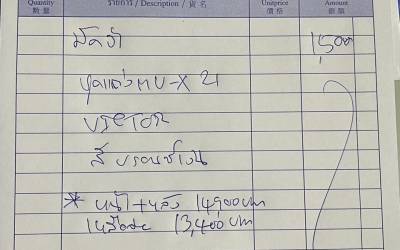 Quantity รายการ / Description / 貨名 Unitprice Amount
數量 價格 銀額
มัดจำ 1,500
ชุดแต่ง MU-X 21
VRETOR
สี บรอนซ์เงิน
* หน้า+หลัง 14,900 บาท
เหลือ 13,400 บาท